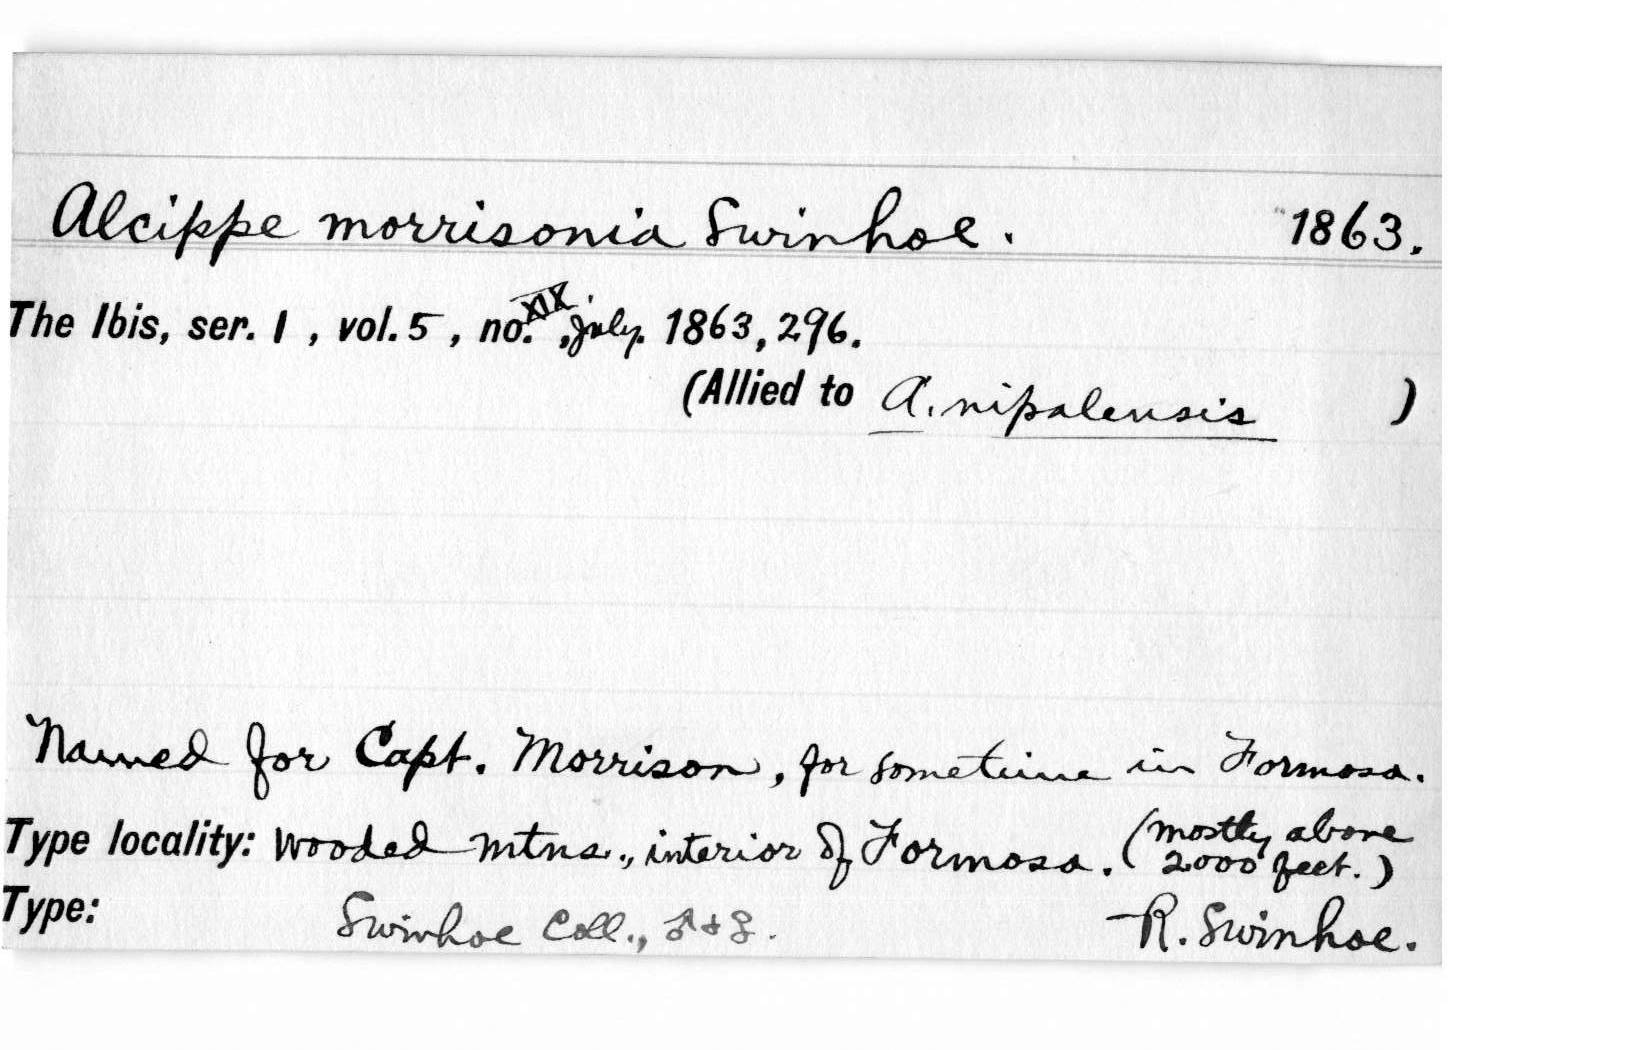 Alcippe morrisonia Swinhoe. 1863.
The Ibis, ser. 1, vol. 5, no. XIX, July. 1863, 296.
(Allied to A. nipalensis )
Named for Capt. Morrison, for sometime in Formosa.
Type locality: Wooded mtns., interior of Formosa. (mostly above 2000 feet.)
Type: Swinhoe Coll., ♂+♀. R. Swinhoe.